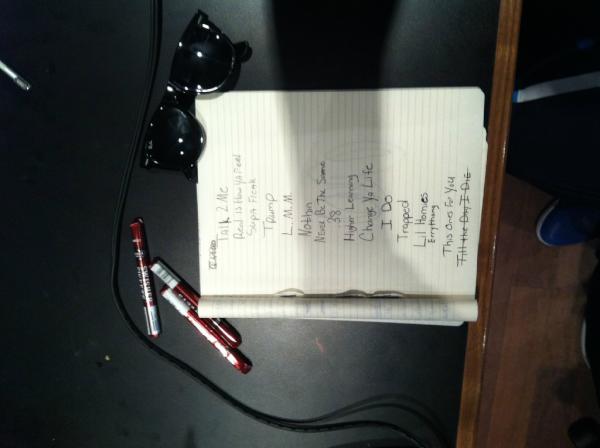 Talk 2 Me
Real Is How Ya Feel
Supa Freak
Trump
L.M.M.
Nothin
Never Be The Same
.38
Higher Learning
Change Ya Life
I Do
Trapped
Lil Homies
Errythang
This Ones For You
Till the Day I Die